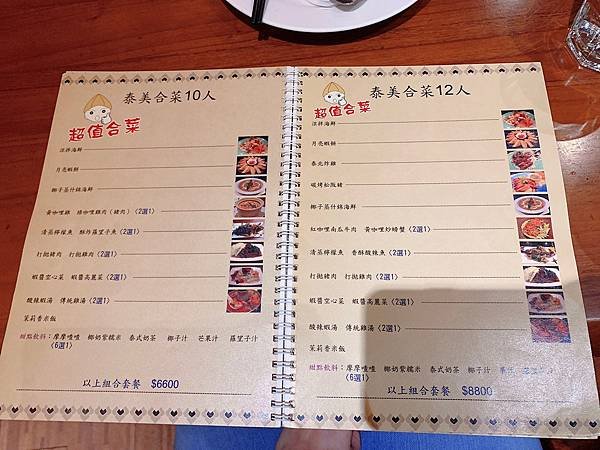 泰美合菜10人
超值合菜
涼拌海鮮
月亮蝦餅
椰子蒸什錦海鮮
黃咖哩雞 綠咖哩雞肉(豬肉)(2選1)
清蒸檸檬魚 酥炸羅望子魚(2選1)
打拋豬肉 打拋雞肉(2選1)
蝦醬空心菜 蝦醬高麗菜(2選1)
酸辣蝦湯 傳統雞湯(2選1)
茉莉香米飯
甜點飲料:摩摩喳喳 椰奶紫糯米 泰式奶茶 椰子汁 芒果汁 羅望子汁
(6選1)
以上組合套餐 $6600
泰美合菜12人
超值合菜
涼拌海鮮
月亮蝦餅
泰北炸雞
碳烤松阪豬
椰子蒸什錦海鮮
紅咖哩南瓜牛肉 黃咖哩炒螃蟹(2選1)
清蒸檸檬魚 香酥酸辣魚(2選1)
打拋豬肉 打拋雞肉(2選1)
蝦醬空心菜 蝦醬高麗菜(2選1)
酸辣蝦湯 傳統雞湯(2選1)
茉莉香米飯
甜點飲料:摩摩喳喳 椰奶紫糯米 泰式奶茶 椰子汁
(6選1)
以上組合套餐 $8800